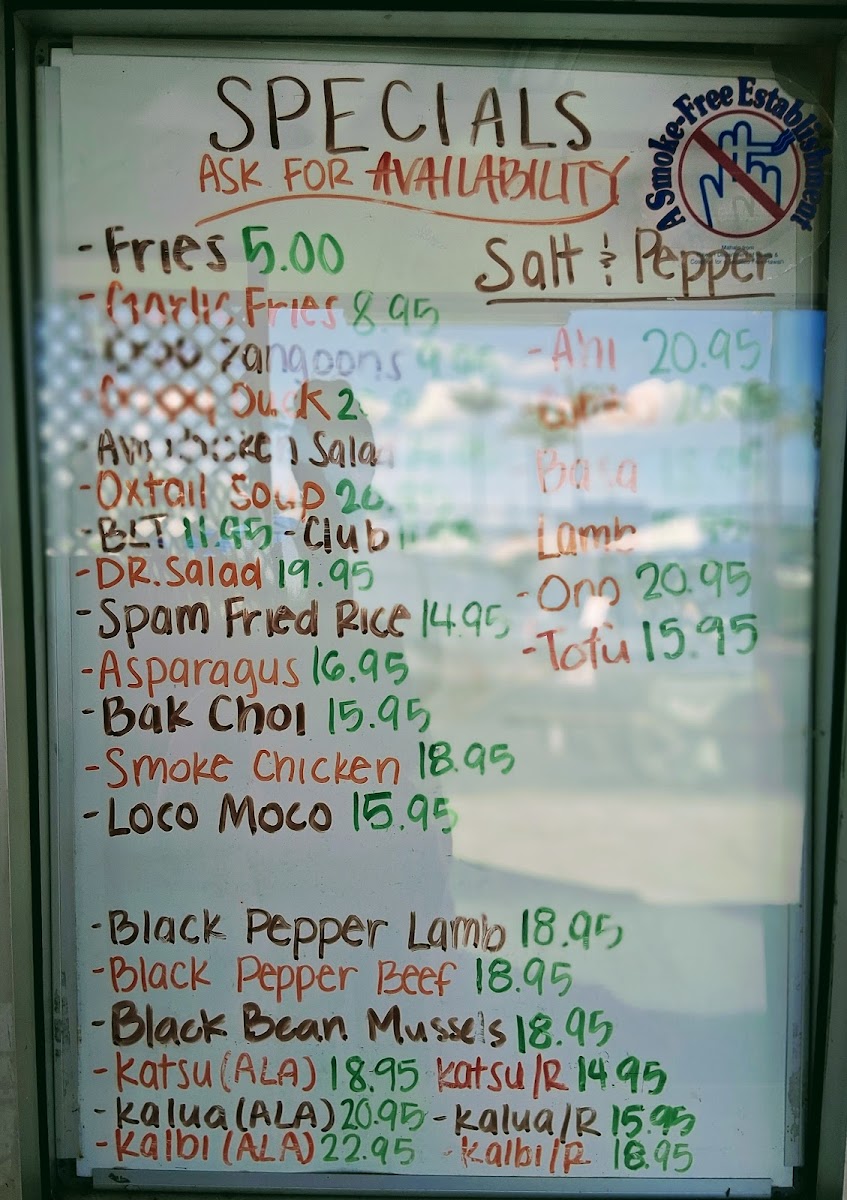 SPECIALS
ASK FOR AVAILABILITY
A Smoke-Free Establishment
- Fries 5.00
- Garlic Fries 8.95
Rangoons
Duck
Salad
- Oxtail Soup
- BLT 11.95 - Club
- DR. Salad 19.95
- Spam Fried Rice 14.95
- Asparagus 16.95
- Bak Choi 15.95
- Smoke Chicken 18.95
- Loco Moco 15.95
Salt & Pepper
- Ahi 20.95
Basa
Lamb
- Ono 20.95
- Tofu 15.95
- Black Pepper Lamb 18.95
- Black Pepper Beef 18.95
- Black Bean Mussels 18.95
- Katsu (ALA) 18.95 Katsu/R 14.95
- Kalua (ALA) 20.95 - Kalua/R 15.95
- Kalbi (ALA) 22.95 - Kalbi/R 18.95